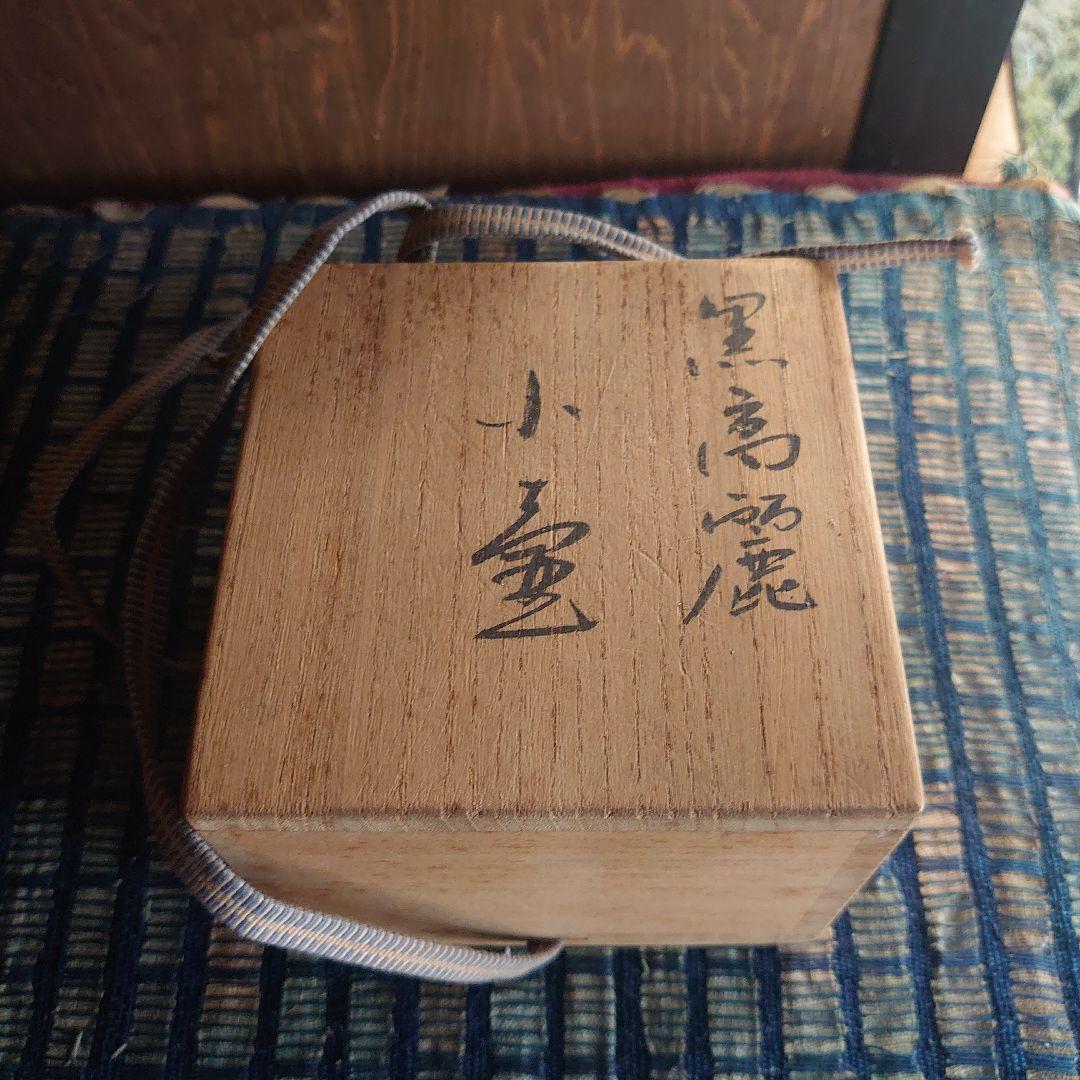 黒高麗
小壷